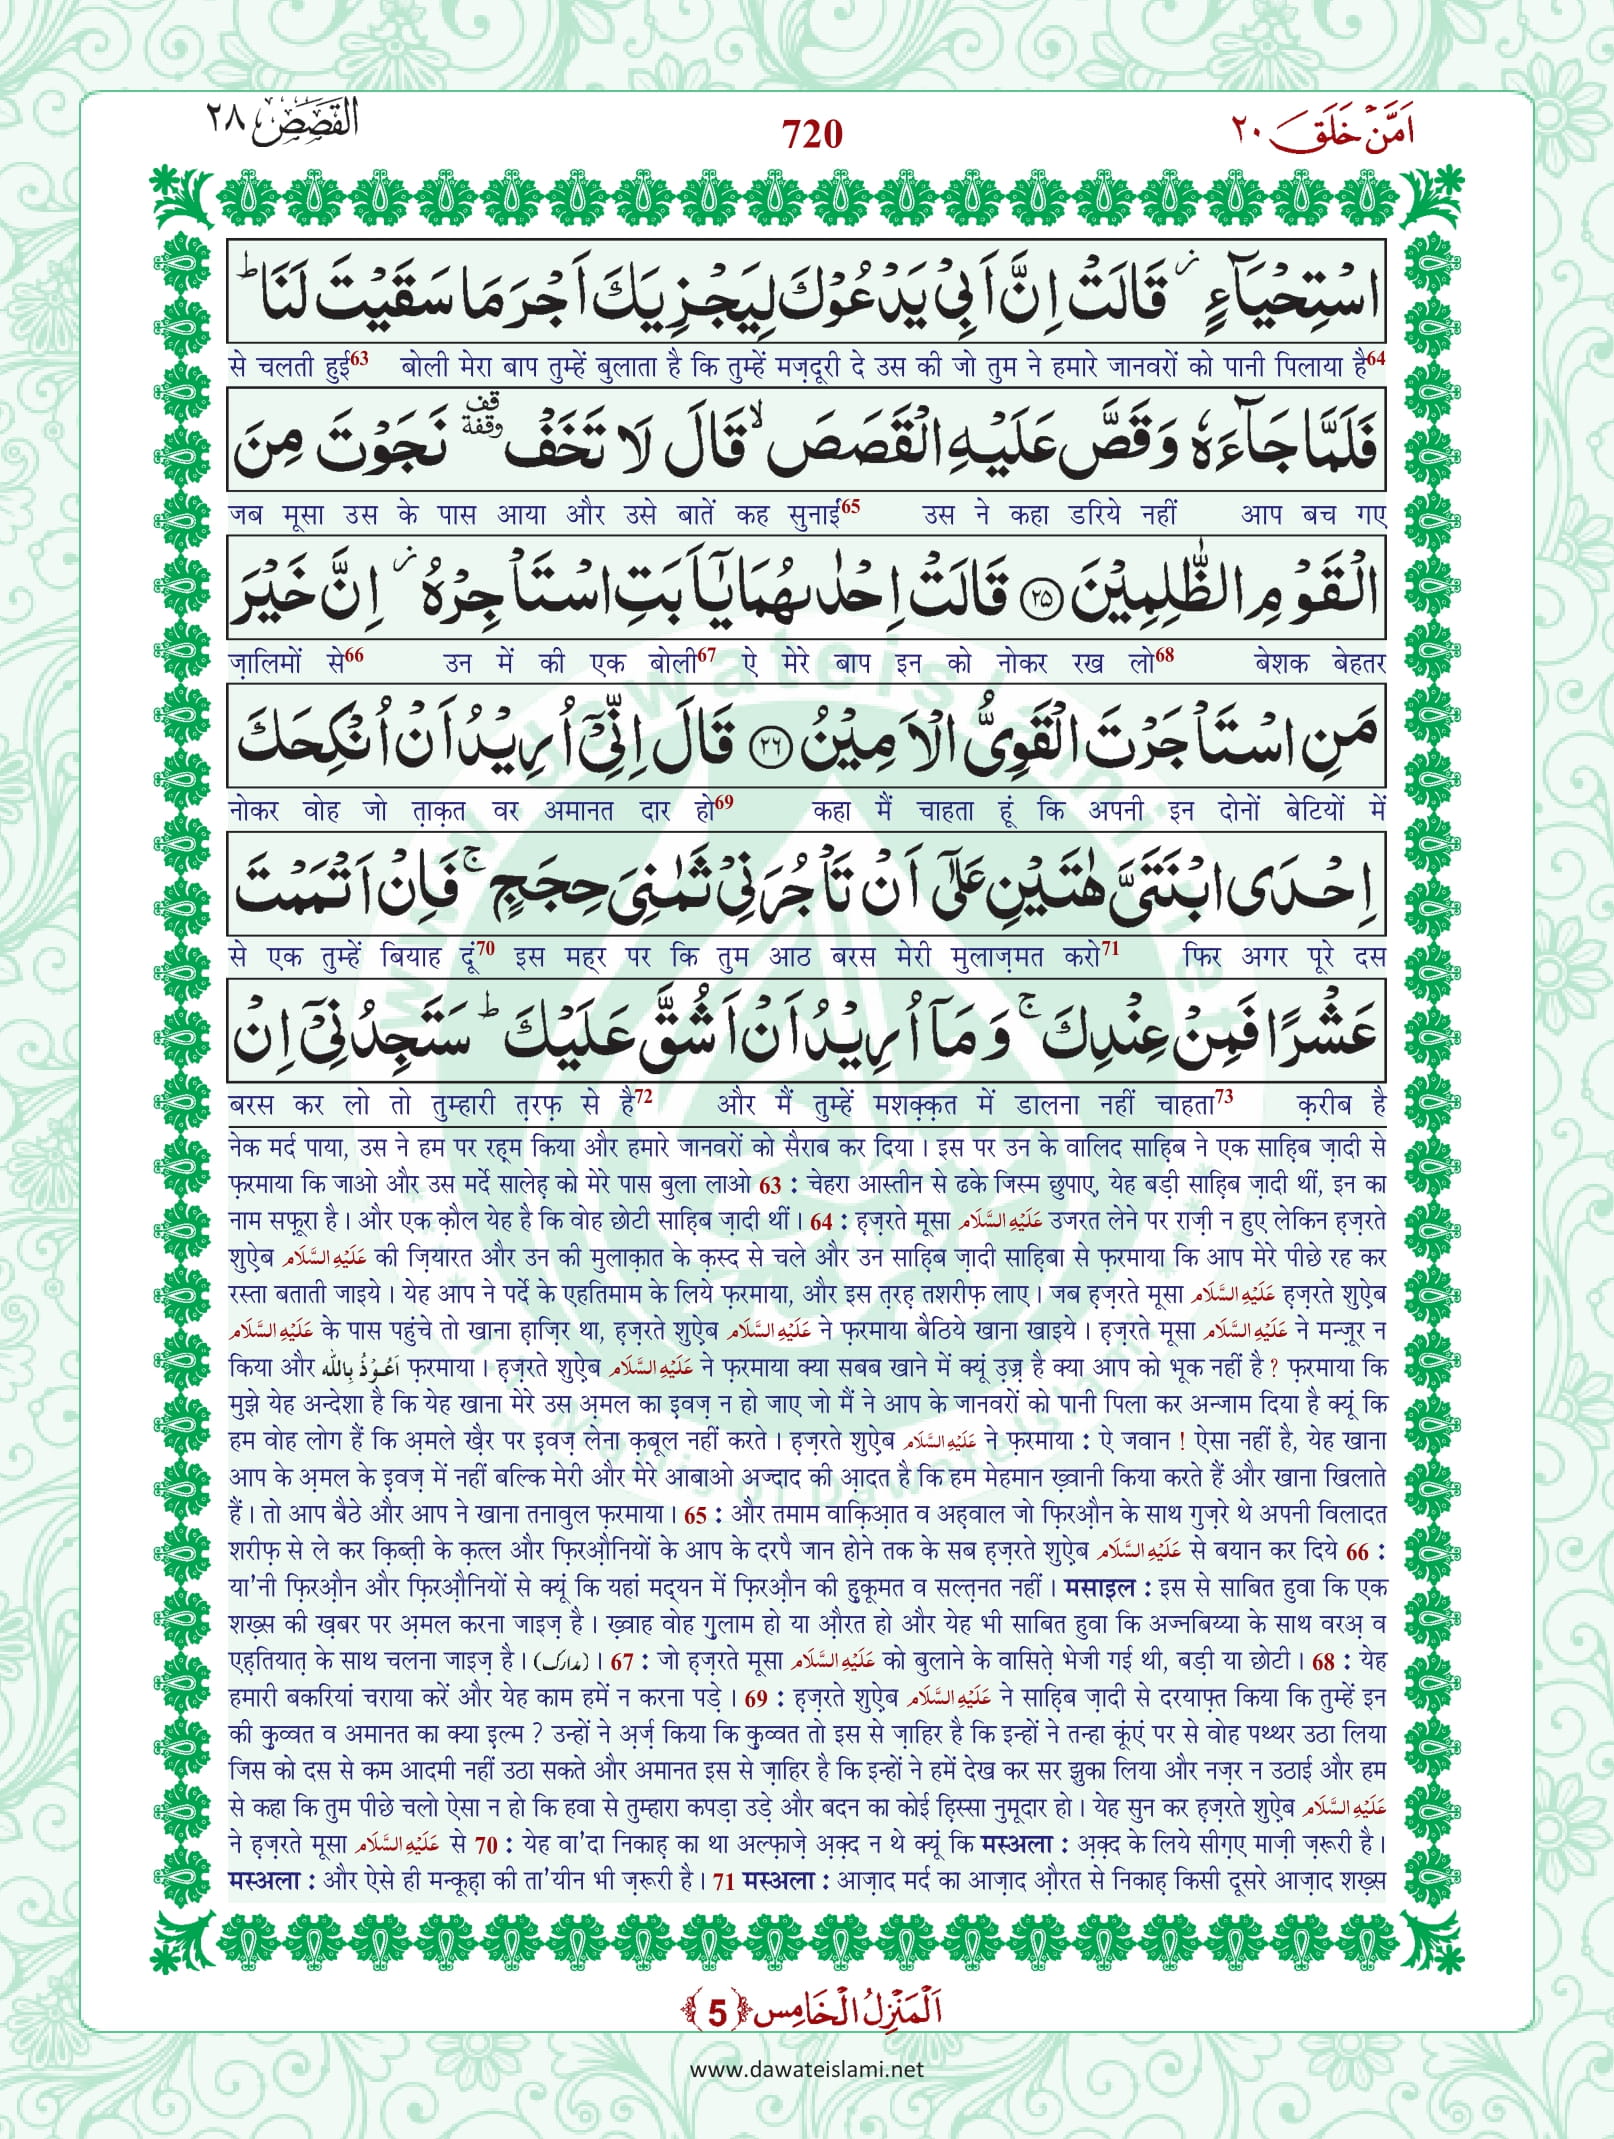 اَمَّنۡ خَلَقَ ٢٠
720
القَصَص ٢٨
اسۡتِحۡیَآءٍ ۫ قَالَتۡ اِنَّ اَبِیۡ یَدۡعُوۡكَ لِیَجۡزِیَكَ اَجۡرَ مَا سَقَیۡتَ لَنَا ؕ
से चलती हुई63 बोली मेरा बाप तुम्हें बुलाता है कि तुम्हें मज़दूरी दे उस की जो तुम ने हमारे जानवरों को पानी पिलाया है64
فَلَمَّا جَآءَهٗ وَقَصَّ عَلَیۡهِ الۡقَصَصَ ۙ قَالَ لَا تَخَفۡ قف وقفة نَجَوۡتَ مِنَ
जब मूसा उस के पास आया और उसे बातें कह सुनाई65 उस ने कहा डरिये नहीं आप बच गए
الۡقَوۡمِ الظّٰلِمِیۡنَ ﴿٢٥﴾ قَالَتۡ اِحۡدٰىهُمَا یٰۤاَبَتِ اسۡتَاۡجِرۡهُ ۫ اِنَّ خَیۡرَ
ज़ालिमों से66 उन में की एक बोली67 ऐ मेरे बाप इन को नोकर रख लो68 बेशक बेहतर
مَنِ اسۡتَاۡجَرۡتَ الۡقَوِیُّ الۡاَمِیۡنُ ﴿٢٦﴾ قَالَ اِنِّیۡۤ اُرِیۡدُ اَنۡ اُنۡكِحَكَ
नोकर वोह जो त़ाक़त वर अमानत दार हो69 कहा मैं चाहता हूं कि अपनी इन दोनों बेटियों में
اِحۡدَی ابۡنَتَیَّ هٰتَیۡنِ عَلٰۤی اَنۡ تَاۡجُرَنِیۡ ثَمٰنِیَ حِجَجٍ ۚ فَاِنۡ اَتۡمَمۡتَ
से एक तुम्हें बियाह दूं70 इस महर पर कि तुम आठ बरस मेरी मुलाज़मत करो71 फिर अगर पूरे दस
عَشۡرًا فَمِنۡ عِنۡدِكَ ۚ وَ مَاۤ اُرِیۡدُ اَنۡ اَشُقَّ عَلَیۡكَ ؕ سَتَجِدُنِیۡۤ اِنۡ
बरस कर लो तो तुम्हारी त़रफ़ से है72 और मैं तुम्हें मशक़्क़त में डालना नहीं चाहता73 क़रीब है
नेक मर्द पाया, उस ने हम पर रह़्म किया और हमारे जानवरों को सैराब कर दिया। इस पर उन के वालिद साहिब ने एक साहिब ज़ादी से
फ़रमाया कि जाओ और उस मर्दे सालेह़ को मेरे पास बुला लाओ 63 : चेहरा आस्तीन से ढके जिस्म छुपाए, येह बड़ी साहिब ज़ादी थीं, इन का
नाम सफ़ूरा है। और एक क़ौल येह है कि वोह छोटी साहिब ज़ादी थीं। 64 : ह़ज़रते मूसा عَلَيْهِ السَّلَام उजरत लेने पर राज़ी न हुए लेकिन ह़ज़रते
शुऐब عَلَيْهِ السَّلَام की ज़ियारत और उन की मुलाक़ात के क़स्द से चले और उन साहिब ज़ादी साहिबा से फ़रमाया कि आप मेरे पीछे रह कर
रस्ता बताती जाइये। येह आप ने पर्दे के एहतिमाम के लिये फ़रमाया, और इस त़रह़ तशरीफ़ लाए। जब ह़ज़रते मूसा عَلَيْهِ السَّلَام ह़ज़रते शुऐब
عَلَيْهِ السَّلَام के पास पहुंचे तो खाना ह़ाज़िर था, ह़ज़रते शुऐब عَلَيْهِ السَّلَام ने फ़रमाया बैठिये खाना खाइये। ह़ज़रते मूसा عَلَيْهِ السَّلَام ने मन्ज़ूर न
किया और اَعُوۡذُ بِاللّٰه फ़रमाया। ह़ज़रते शुऐब عَلَيْهِ السَّلَام ने फ़रमाया क्या सबब खाने में क्यूं उज़्र है क्या आप को भूक नहीं है ? फ़रमाया कि
मुझे येह अन्देशा है कि येह खाना मेरे उस अ़मल का इवज़ न हो जाए जो मैं ने आप के जानवरों को पानी पिला कर अन्जाम दिया है क्यूं कि
हम वोह लोग हैं कि अ़मले ख़ैर पर इवज़ लेना क़बूल नहीं करते। ह़ज़रते शुऐब عَلَيْهِ السَّلَام ने फ़रमाया : ऐ जवान ! ऐसा नहीं है, येह खाना
आप के अ़मल के इवज़ में नहीं बल्कि मेरी और मेरे आबाओ अज्दाद की आ़दत है कि हम मेहमान ख़्वानी किया करते हैं और खाना खिलाते
हैं। तो आप बैठे और आप ने खाना तनावुल फ़रमाया। 65 : और तमाम वाक़िआ़त व अह़वाल जो फ़िरऔ़न के साथ गुज़रे थे अपनी विलादत
शरीफ़ से ले कर क़िब्त़ी के क़त्ल और फ़िरऔ़नियों के आप के दरपै जान होने तक के सब ह़ज़रते शुऐब عَلَيْهِ السَّلَام से बयान कर दिये 66 :
या'नी फ़िरऔ़न और फ़िरऔ़नियों से क्यूं कि यहां मद्यन में फ़िरऔ़न की हुकूमत व सल्त़नत नहीं। मसाइल : इस से साबित हुवा कि एक
शख़्स की ख़बर पर अ़मल करना जाइज़ है। ख़्वाह वोह ग़ुलाम हो या औ़रत हो और येह भी साबित हुवा कि अज्नबिय्या के साथ वरअ़ व
एह़तियात़ के साथ चलना जाइज़ है। (مدارک)। 67 : जो ह़ज़रते मूसा عَلَيْهِ السَّلَام को बुलाने के वासिते़ भेजी गई थी, बड़ी या छोटी। 68 : येह
हमारी बकरियां चराया करें और येह काम हमें न करना पड़े। 69 : ह़ज़रते शुऐब عَلَيْهِ السَّلَام ने साहिब ज़ादी से दरयाफ़्त किया कि तुम्हें इन
की क़ुव्वत व अमानत का क्या इल्म ? उन्हों ने अ़र्ज़ किया कि क़ुव्वत तो इस से ज़ाहिर है कि इन्हों ने तन्हा कूंएं पर से वोह पथ्थर उठा लिया
जिस को दस से कम आदमी नहीं उठा सकते और अमानत इस से ज़ाहिर है कि इन्हों ने हमें देख कर सर झुका लिया और नज़र न उठाई और हम
से कहा कि तुम पीछे चलो ऐसा न हो कि हवा से तुम्हारा कपड़ा उड़े और बदन का कोई ह़िस्सा नुमूदार हो। येह सुन कर ह़ज़रते शुऐब عَلَيْهِ السَّلَام
ने ह़ज़रते मूसा عَلَيْهِ السَّلَام से 70 : येह वा'दा निकाह़ का था अल्फ़ाज़े अ़क़्द न थे क्यूं कि मस्अला : अ़क़्द के लिये सीग़ए माज़ी ज़रूरी है।
मस्अला : और ऐसे ही मन्कूह़ा की ता'यीन भी ज़रूरी है। 71 मस्अला : आज़ाद मर्द का आज़ाद औ़रत से निकाह़ किसी दूसरे आज़ाद शख़्स
اَلۡمَنۡزِلُ الۡخَامِس ﴿5﴾
www.dawateislami.net